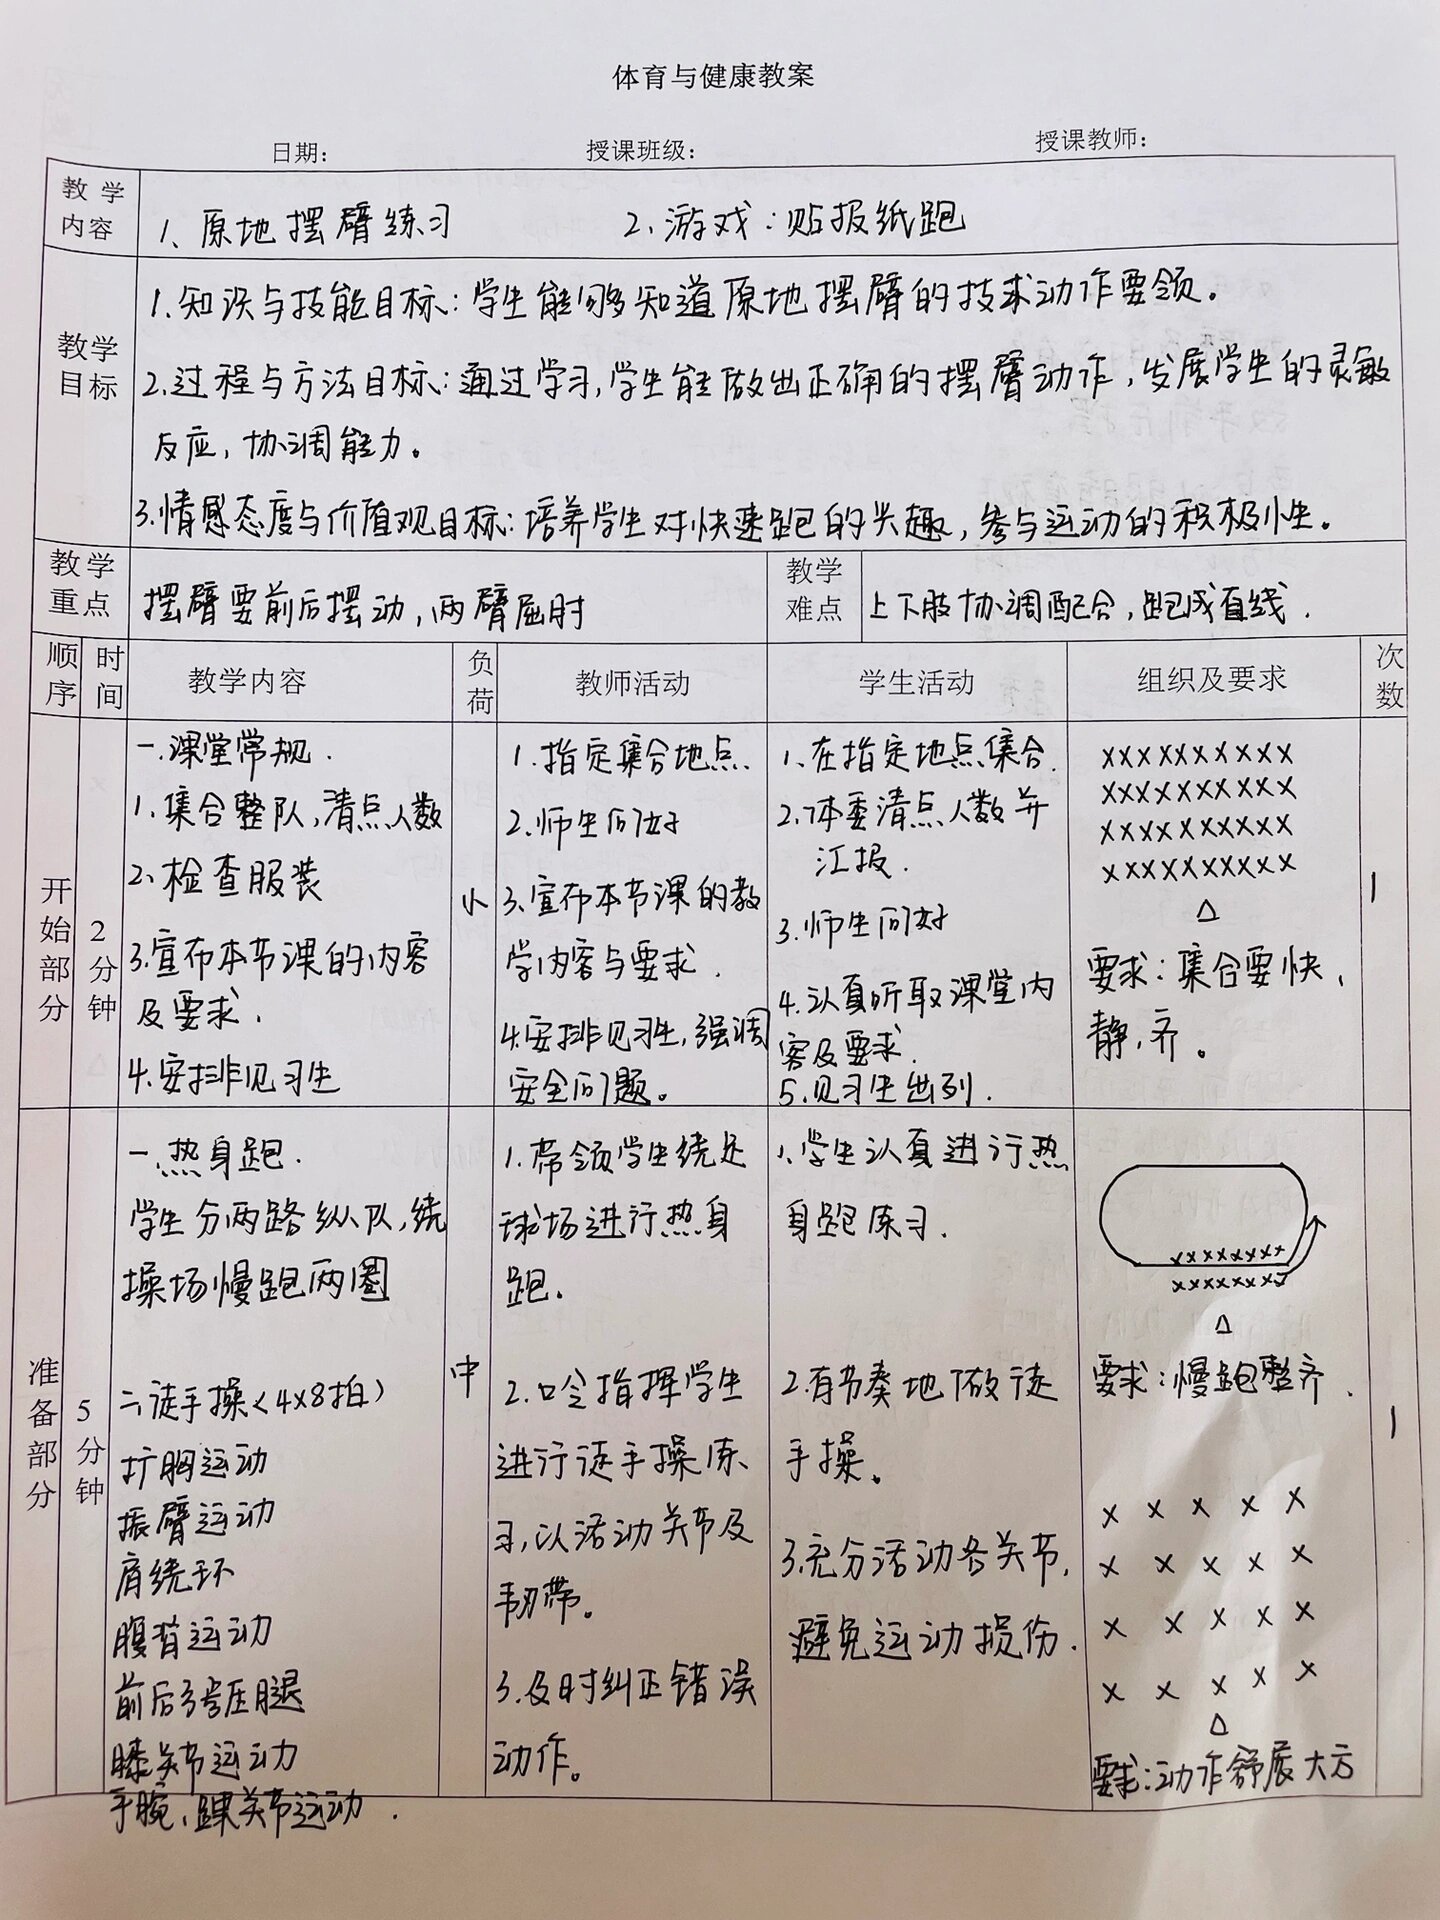 体育与健康教案
日期： 授课班级： 授课教师：
教学
内容
1、原地摆臂练习 2、游戏：贴报纸跑
教学
目标
1.知识与技能目标：学生能够知道原地摆臂的技术动作要领。
2.过程与方法目标：通过学习，学生能做出正确的摆臂动作，发展学生的灵敏
反应，协调能力。
3.情感态度与价值观目标：培养学生对快速跑的兴趣，参与运动的积极性。
教学
重点
摆臂要前后摆动，两臂屈肘
教学
难点
上下肢协调配合，跑成直线.
顺序
时间
教学内容
负荷
教师活动
学生活动
组织及要求
次数
开始部分
2分钟
一.课堂常规.
1.集合整队，清点人数
2、检查服装
3.宣布本节课的内容
及要求.
4.安排见习生
小
1.指定集合地点.
2.师生问好
3.宣布本节课的教
学内容与要求.
4.安排见习生，强调
安全问题。
1、在指定地点集合.
2.体委清点人数并
汇报.
3.师生问好
4.认真听取课堂内
容及要求.
5.见习生出列.
XXXXXXXXXX
XXXXXXXXXX
XXXXXXXXXX
XXXXXXXXXX
△
要求：集合要快、
静、齐。
1
准备部分
5分钟
一.热身跑.
学生分两路纵队，绕
操场慢跑两圈
二徒手操<4x8拍）
扩胸运动
振臂运动
肩绕环
腹背运动
前后弓步压腿
膝关节运动
手腕、踝关节运动.
中
1.带领学生绕足
球场进行热身
跑.
2.口令指挥学生
进行徒手操练
习，以活动关节及
韧带。
3.及时纠正错误
动作。
1、学生认真进行热
身跑练习.
2.有节奏地做徒
手操。
3.充分活动各关节,
避免运动损伤.
XXXXXXXX
XXXXXXXX
△
要求：慢跑整齐.
X X X X X
X X X X X
X X X X X
X X X X X
△
要求：动作舒展大方
1